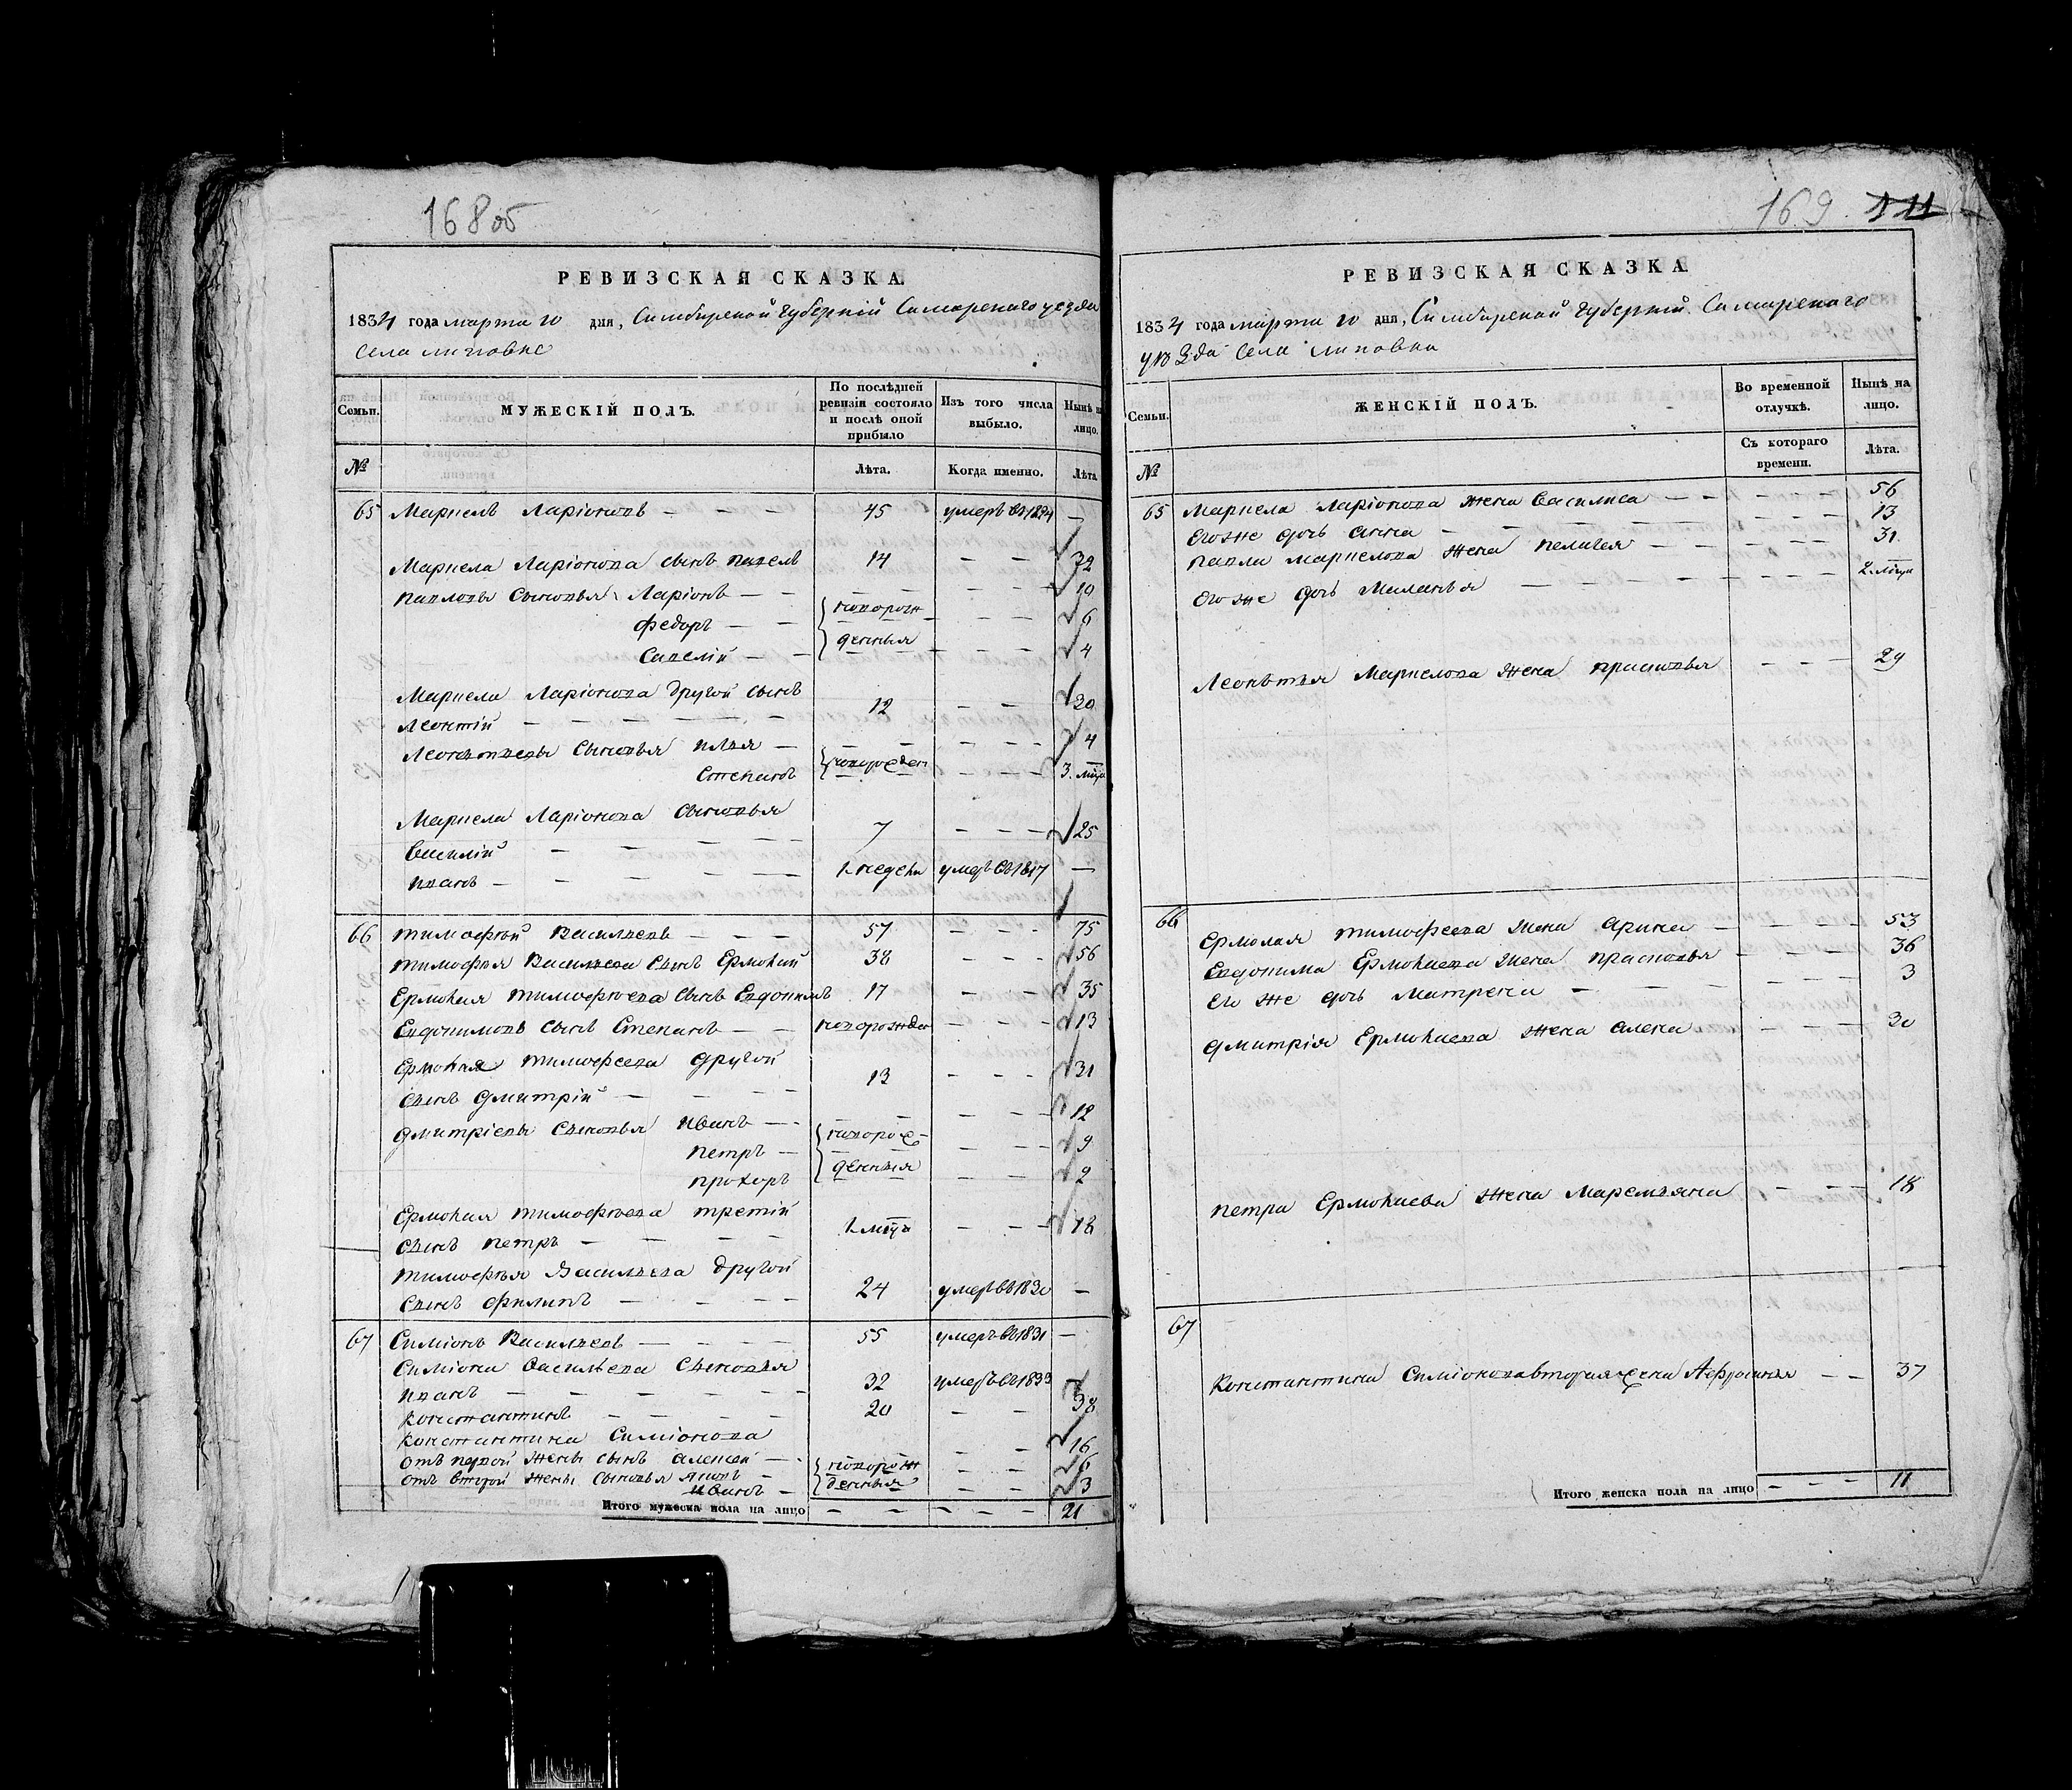 168 об
РЕВИЗСКАЯ СКАЗКА
1834 года марта 20 дня, Симбирской губерніи Самарского уезда
села Липовке
Семьи.
МУЖЕСКІЙ ПОЛЪ.
По послѣдней ревизіи состояло и послѣ оной прибыло
Изъ того числа выбыло.
Нынѣ на лицо.
№
Лѣта.
Когда именно.
Лѣта
65 Маркелъ Ларіоновъ — — — 45 умеръ въ 1824 —
Маркела Ларіонова сынъ Павелъ 14 32
Павловы сыновья Ларіонъ — — новорож- — — — 10
Федоръ — — — — — 6
Савелій — — денныя — — — 4
Маркела Ларіонова другой сынъ
Леонтій — — — — — 12 — — 30
Леонтьевы сыновья Илья — — — — 4
Степанъ новорожден — — 3. мѣца
Маркела Ларіонова сыновья
Василій — — — — 7 — — — 25
Иванъ — — — — — 1 недели умеръ въ 1817 —
66 Тимофѣй Васильевъ — — — 57 — — — 75
Тимофея Васильева сынъ Ермолай 38 — — — 56
Ермолая Тимофѣева сынъ Евдокимъ 17 — — 35
Евдокимовъ сынъ Степанъ — — новорожден — — — 13
Ермолая Тимофеева другой
сынъ Дмитрій — — — 13 — — - 31
Дмитріевы сыновья Иванъ — новорож- — — — 12
Петръ — — — 9
Прохоръ денныя — — 2
Ермолая Тимофѣева третій
сынъ Петръ — — — — 1 мѣца — — — 18
Тимофѣя Васильева другой
сынъ Филипъ — — — — 24 умеръ въ 1830 —
67 Симіонъ Васильевъ — — — 55 умеръ въ 1831 —
Симіона Васильева сыновья
Иванъ — — — — — 32 умеръ въ 1833
Константинъ — — — — 20 — — 38
Константина Симіонова
отъ первой жены сынъ Алексей — — — 16
отъ второй жены сыновья Яковъ — новорож — — 6
Иванъ — денныя — — 3
Итого мужеска пола на лицо — — — — — 21
169 111
РЕВИЗСКАЯ СКАЗКА
1834 года марта 20 дня, Симбирской губерніи Самарского
уѣзда села Липовки
Семьи.
ЖЕНСКІЙ ПОЛЪ.
Во временной отлучкѣ.
Нынѣ на лицо.
№
Съ котораго времени.
Лѣта.
65 Маркела Ларіонова жена Василиса — — — — 56
Его же дочь Анна — — — — 13
Павла Маркелова жена Пелагея — — — — 31
Его же дочь Маланья — — — — 2. мѣца
Леонтья Маркелова жена Прасковья — — — 29
66 Ермолая Тимофеева жена Арина — — — 53
Евдокима Ермолаева жена Прасковья — — — 36
Его же дочь Матрена — — — — 3
Дмитрія Ермолаева жена Алена — — — 30
Петра Ермолаева жена Маремьяна — — — 18
67
Константина Симіонова вторая жена Афросинья — — 37
Итого женска пола на лицо — — — 11